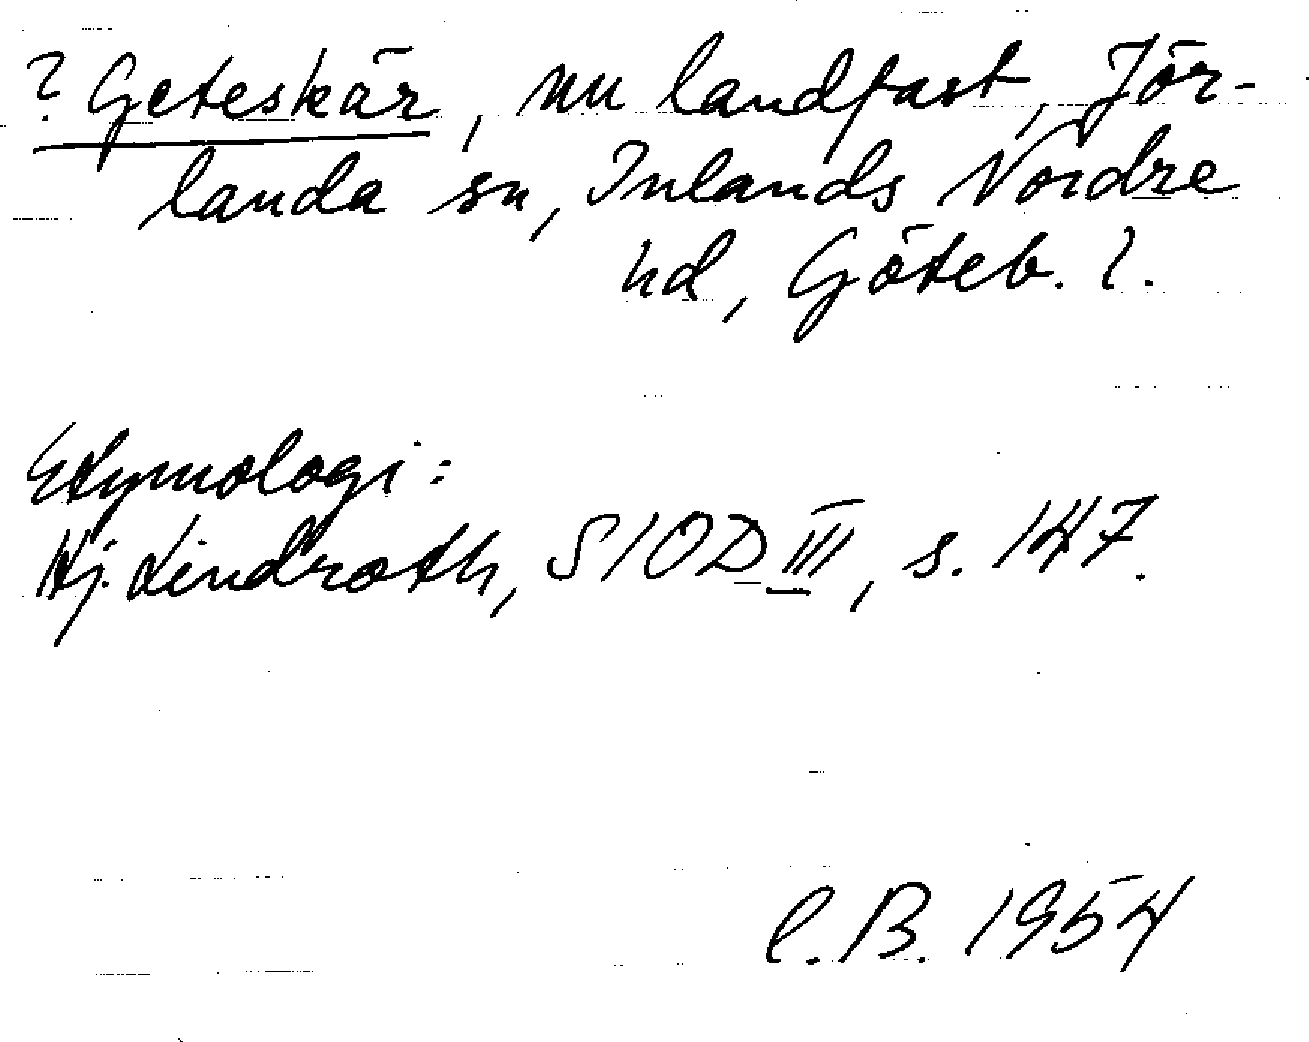 ? Geteskär, nu landfast, Jör-
landa sn, Inlands Nordre
hd, Göteb. l.
Etymologi:
Hj. Lindroth, SIOD III, s. 147.
C.B. 1954